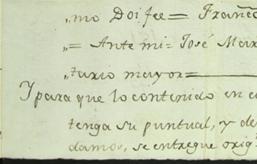 „mo Doi fee = Franco
„= Ante mi = José Mar
„tario mayor =
Y para que lo contenido en e
tenga su puntual, y de
damos, se entregue orig